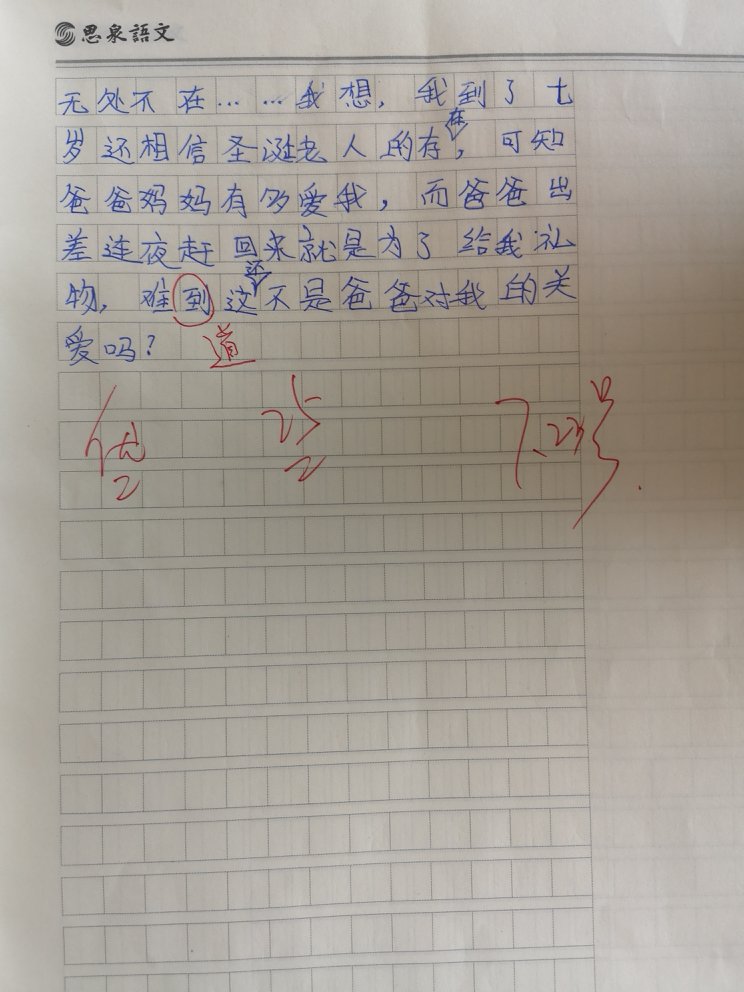 思泉語文
无处不在……我想，我到了七
岁还相信圣诞老人的存在，可知
爸爸妈妈有多爱我，而爸爸出
差连夜赶回来就是为了给我礼
物，难到这还不是爸爸对我的关
爱吗？ 道
优 25
2 2
7.23